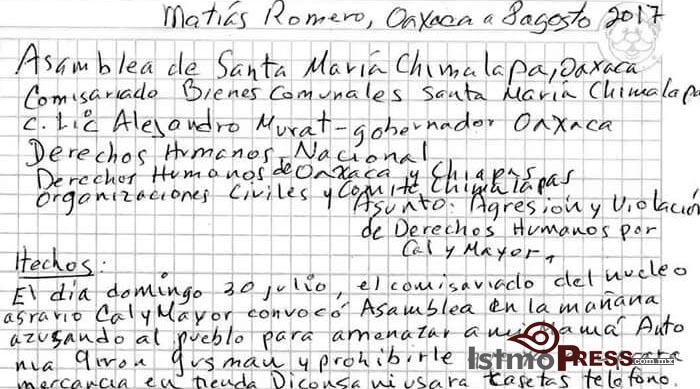 Matías Romero, Oaxaca a 8 agosto 2017
Asamblea de Santa María Chimalapa, Oaxaca
Comisariado Bienes Comunales Santa María Chimalapa
C. Lic Alejandro Murat - gobernador Oaxaca
Derechos Humanos Nacional
Derechos Humanos de Oaxaca y Chiapas
Organizaciones Civiles y Comité Chimalapas
Asunto: Agresión y Violación
de Derechos Humanos por
Cal y Mayor,
Hechos:
El día domingo 30 julio, el comisariado del nucleo
agrario Cal y Mayor convocó Asamblea en la mañana
azusando al pueblo para amenazar a mi mamá Auto
nia Giron gusman y prohibirle
mercancia en tienda Diconsa ni usara casetas telefono.
IstmoPress.com.mx